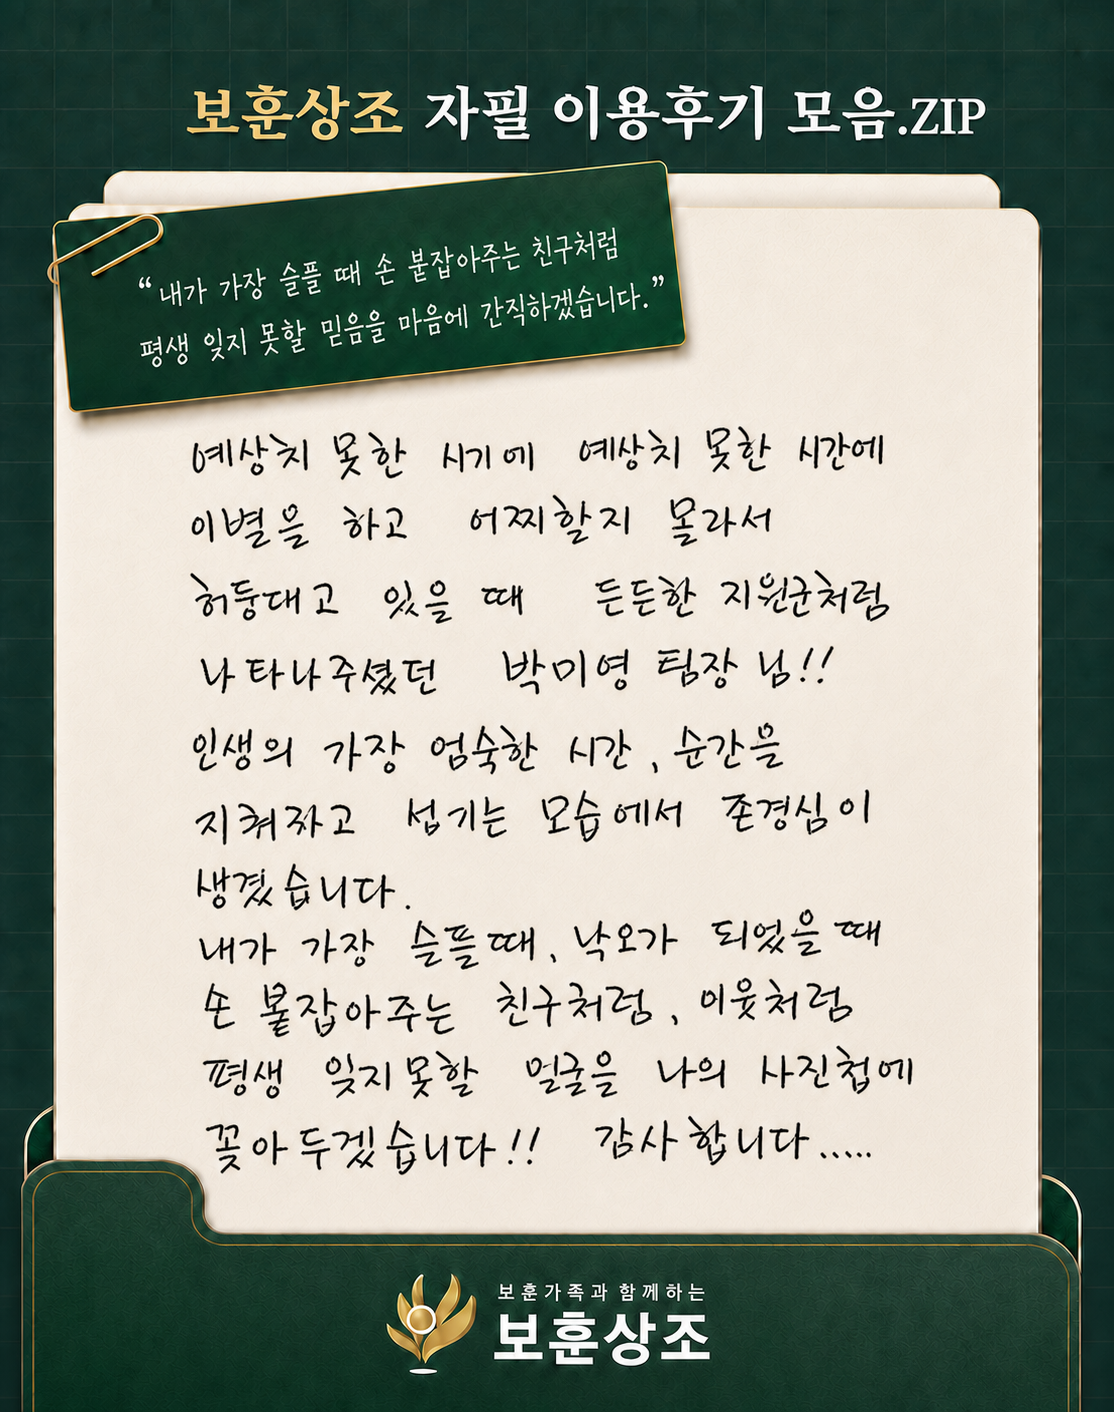 보훈상조 자필 이용후기 모음.ZIP
“내가 가장 슬플 때 손 붙잡아주는 친구처럼
평생 잊지 못할 믿음을 마음에 간직하겠습니다.”
예상치 못한 시기에 예상치 못한 시간에
이별을 하고 어찌할지 몰라서
허둥대고 있을 때 든든한 지원군처럼
나타나주셨던 박미영 팀장님!!
인생의 가장 엄숙한 시간, 순간을
지휘하고 섬기는 모습에서 존경심이
생겼습니다.
내가 가장 슬플때, 낙오가 되었을때
손 붙잡아주는 친구처럼, 이웃처럼
평생 잊지못할 얼굴을 나의 사진첩에
꽂아두겠습니다!! 감사합니다.....
보훈가족과 함께하는
보훈상조